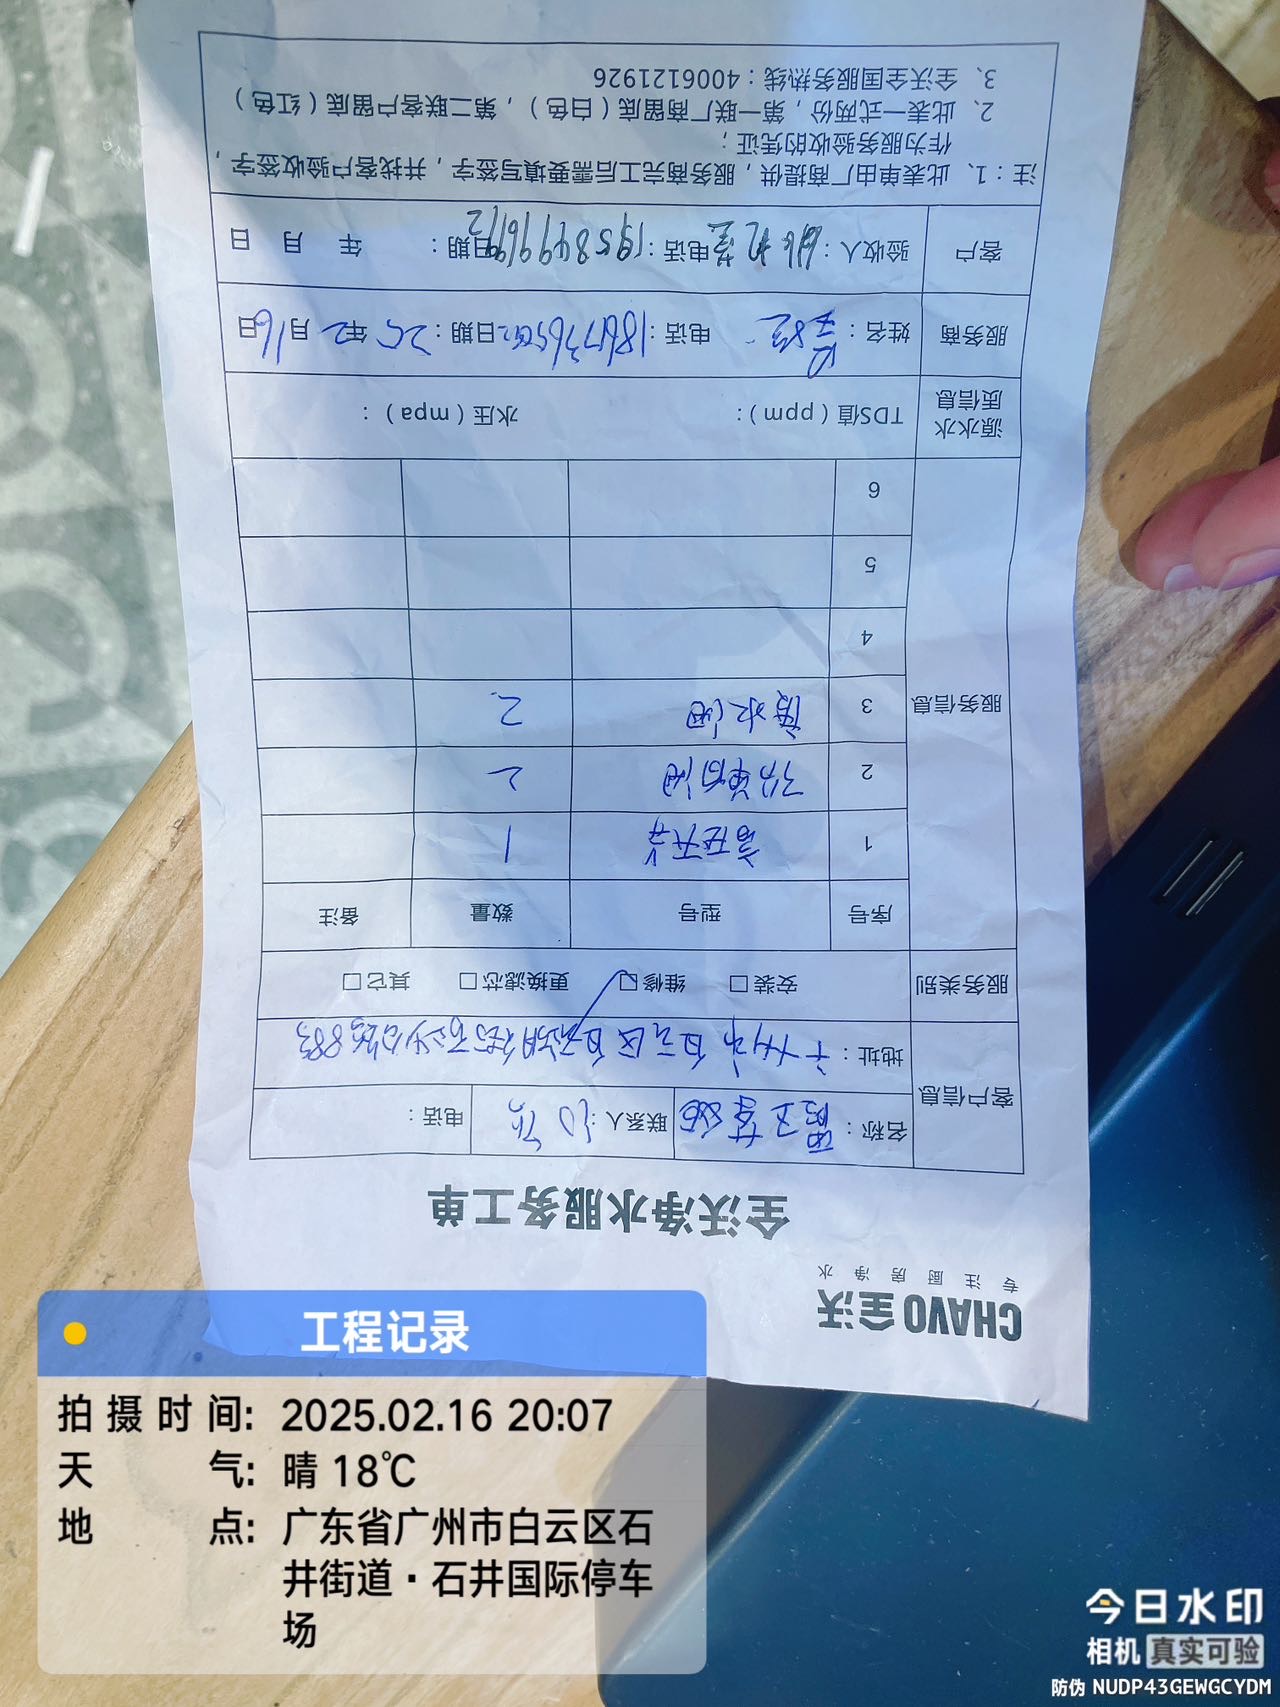 CHAVO 全沃
专注厨房净水
全沃净水服务工单
客户信息
名称： 联系人： 电话：
地址：广州市白云区 883
服务类别
安装□ 维修☑ 更换滤芯□ 其它□
服务信息
序号 型号 数量 备注
1 高压开关 1
2 2
3 废水阀 2
4
5
6
源水水质信息
TDS值（ppm）： 水压（mpa）：
服务商
姓名： 电话： 日期：25年2月16日
客户
验收人： 电话：19584996192 日期： 年 月 日
注：1、此表单由厂商提供，服务商完工后需要填写签字，并找客户验收签字，
作为服务验收的凭证；
2、此表一式两份，第一联厂商留底（白色），第二联客户留底（红色）
3、全沃全国服务热线：4006121926
工程记录
拍摄时间: 2025.02.16 20:07
天气: 晴 18℃
地点: 广东省广州市白云区石
井街道·石井国际停车
场
今日水印
相机 真实可验
防伪 NUDP43GEWGCYDM